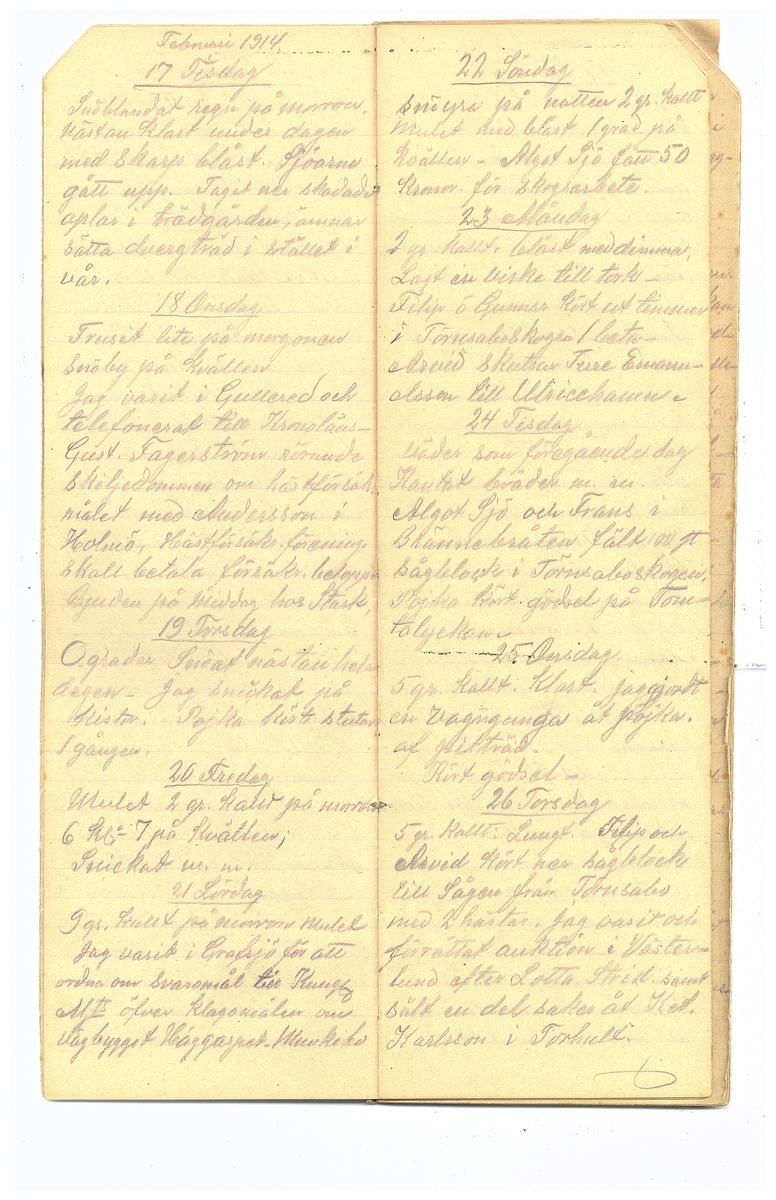 Februari 1914
17 Tisdag
Snöblandat regn på morron.
Nästan klart under dagen
med skarp blåst. Sjöarne
gått upp. Tagit ner skadade
aplar i trädgården, ämnar
sätta dvergträd i stället i
vår.
18 Onsdag
Fruset lite på morgonen
Snöby på kvällen
Jag varit i Gullered och
telefonerat till Kronoläns-
Gust. Fagerström rörande
skiljedommen om hästförsäk
målet med Andersson i
Holmö, Hästförsäkr. förening
skall betala försäkr. beloppe
Bjuden på middag hos Stark,
19 Torsdag
0 grader Snöat nästan hela
dagen - Jag snickat på
kistor. Pojka kört stutar
1 gången.
20 Fredag
Mulet 2 gr. kallt på morron
6 kl. 7 på kvällen;
Snickat m. m.
21 Lördag
9 gr. kallt på morron Mulet
Jag varit i Grafsjö för att
ordna om svaromål till Kungl
Mjt öfver klagomålen om
vägbygget Häggarpet-Munkebo
22 Söndag
Snöyra på natten 2 gr. kallt
Mulet med blåst 1 grad på
kvällen - Algot Sjö fått 50
Kronor. för skogsarbete.
23 Måndag
2 gr kallt. blåst med dimma,
Lagt in viske till tork -
Filip o Gunnar kört ut timmer
i Törnsaboskogen 1 beta-
Arvid skutsar Ture Emanu-
elsson till Ulricehamn.
24 Tisdag
Väder som föregående dag
Kantat bräder m. m.
Algot Sjö och Frans i
Brännebråten fält
sågblock i Törnsaboskogen,
Pojka kört gödsel på Törn-
tolyckan
25 Onsdag.
5 gr. kallt. Klart. jag gjordt
en vagngunga åt pojka.
af pilträd.
Kört gödsel -
26 Torsdag
5 gr. kallt. Lungt. Filip och
Arvid kört ner sågblock
till Sågen från Törnsabo
med 2 hästar. jag varit och
förrättat auktion i Väster-
lund efter Lotta Strid. samt
sålt en del saker åt
Karlsson i Torhult.